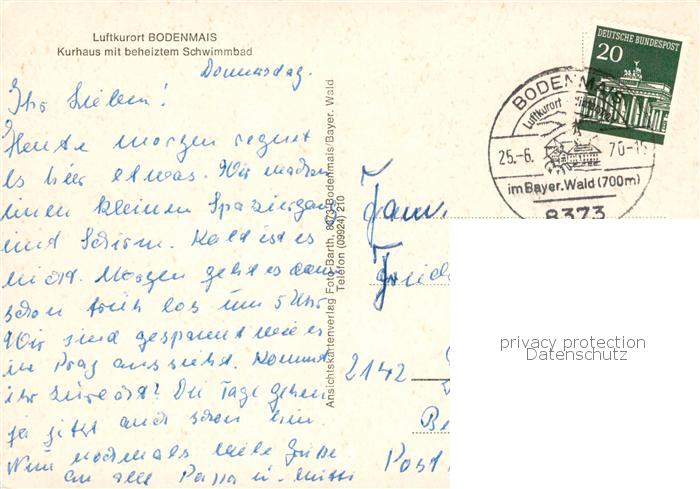 Luftkurort BODENMAIS
Kurhaus mit beheiztem Schwimmbad
Donnerstag.
Ihr Lieben!
Heute morgen regnet
es hier etwas. Wir machen
einen kleinen Spaziergang
mit Schirm. Kalt ist es
nicht. Morgen geht es dann
schon früh los um 5 Uhr
Wir sind gespannt wie es
in Prag aussieht. Kommt
ihr zurecht? Die Tage gehen
ja jetzt auch schon hin.
Nun nochmals viele Grüße
an alle Pappa u. Mutti
Ansichtskartenverlag Foto Barth, 8373 Bodenmais/Bayer. Wald
Telefon (09924) 210
DEUTSCHE BUNDESPOST
20
BODENMAIS
Luftkurort
25.-6. 70-1
im Bayer. Wald (700m)
8373
Fam.
Fried
2142
Be
Post
privacy protection
Datenschutz